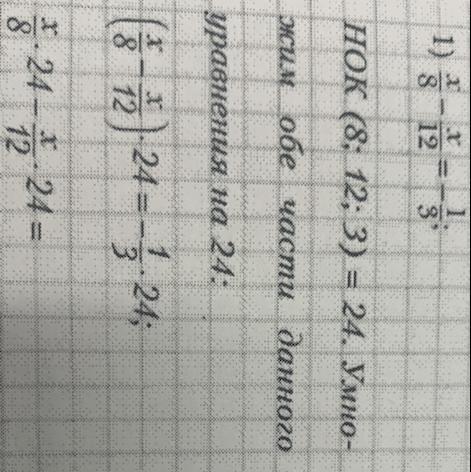 1) x/8 − x/12 = −1/3;
НОК (8; 12; 3) = 24. Умно-
жим обе части данного
уравнения на 24:
(x/8 − x/12) · 24 = −1/3 · 24;
x/8 · 24 − x/12 · 24 =